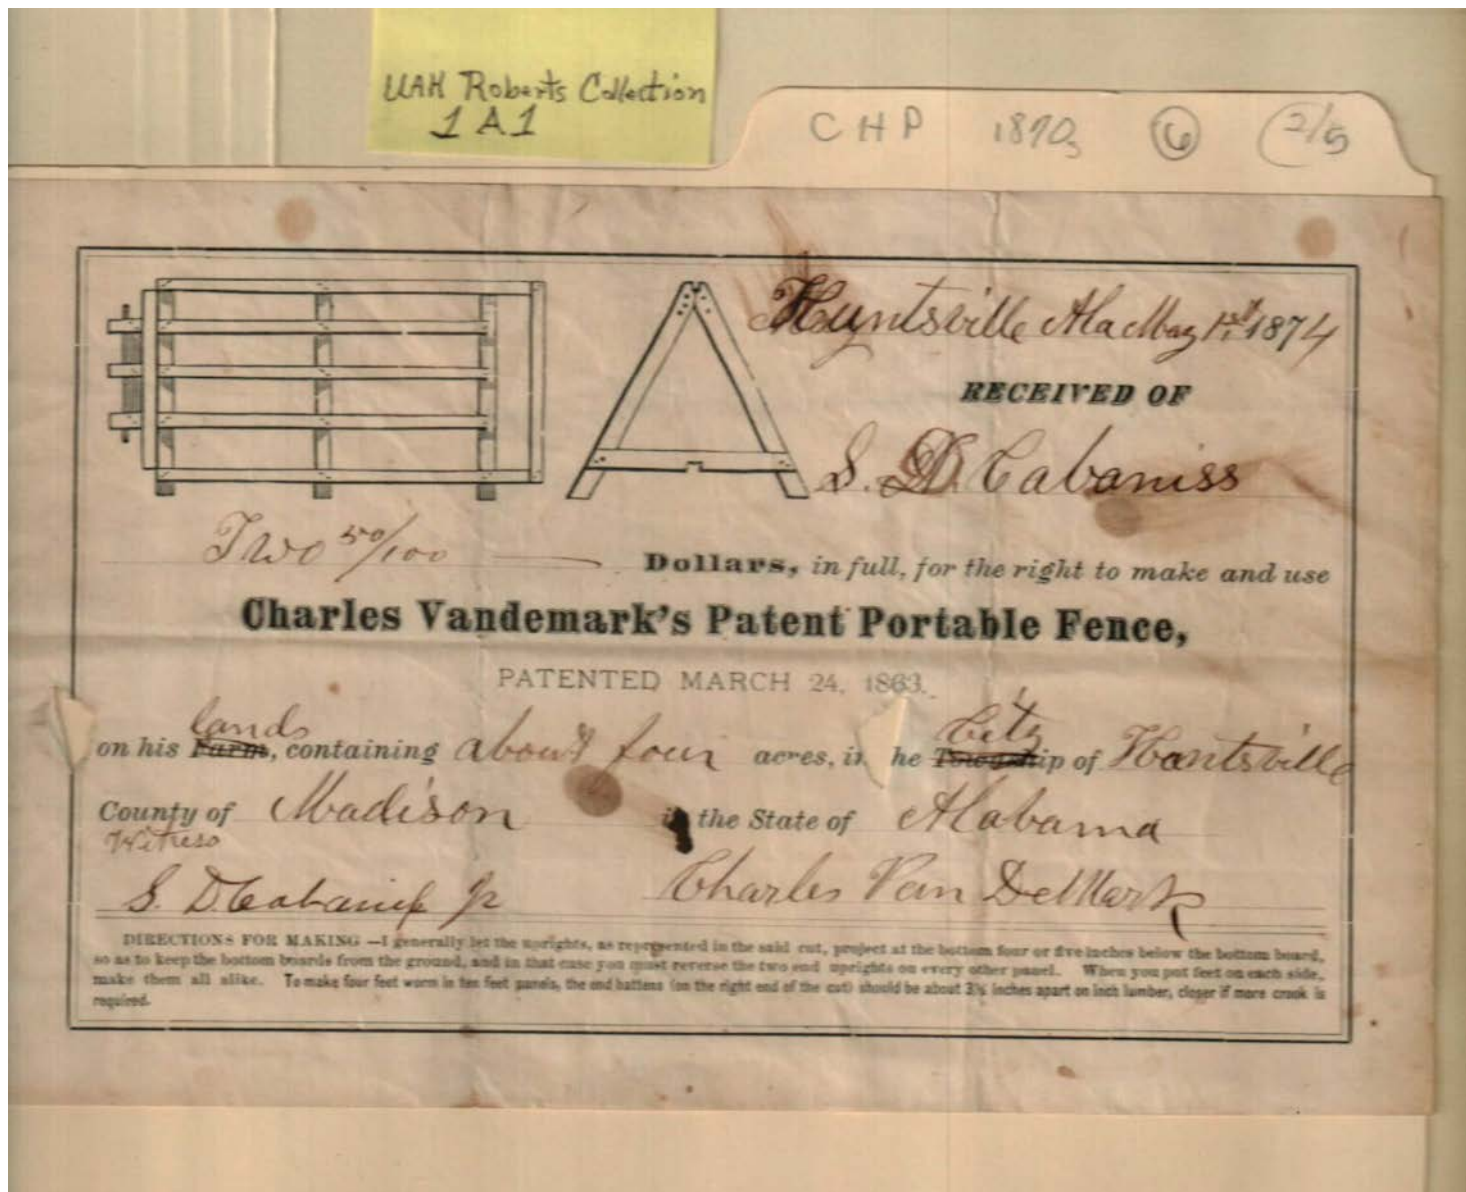 UAH Roberts Collection
1 A 1
CHP 1870s 6 2/5
Huntsville Ala May 1st 1874
RECEIVED OF
S. D. Cabaniss
Two 50/100
Dollars, in full, for the right to make and use
Charles Vandemark's Patent Portable Fence,
PATENTED MARCH 24, 1863.
lands City
on his Farm, containing about four acres, in he Township of Huntsville
County of Madison in the State of Alabama
Witness
S. D. Cabaniss Jr Charles Van DeMark
DIRECTIONS FOR MAKING —I generally let the uprights, as represented in the said cut, project at the bottom four or five inches below the bottom board,
so as to keep the bottom boards from the ground, and in that case you must reverse the two end uprights on every other panel. When you put feet on each side,
make them all alike. To make four feet worm in ten feet panels, the end battens (on the right end of the cut) should be about 3½ inches apart on inch lumber, closer if more crook is
required.